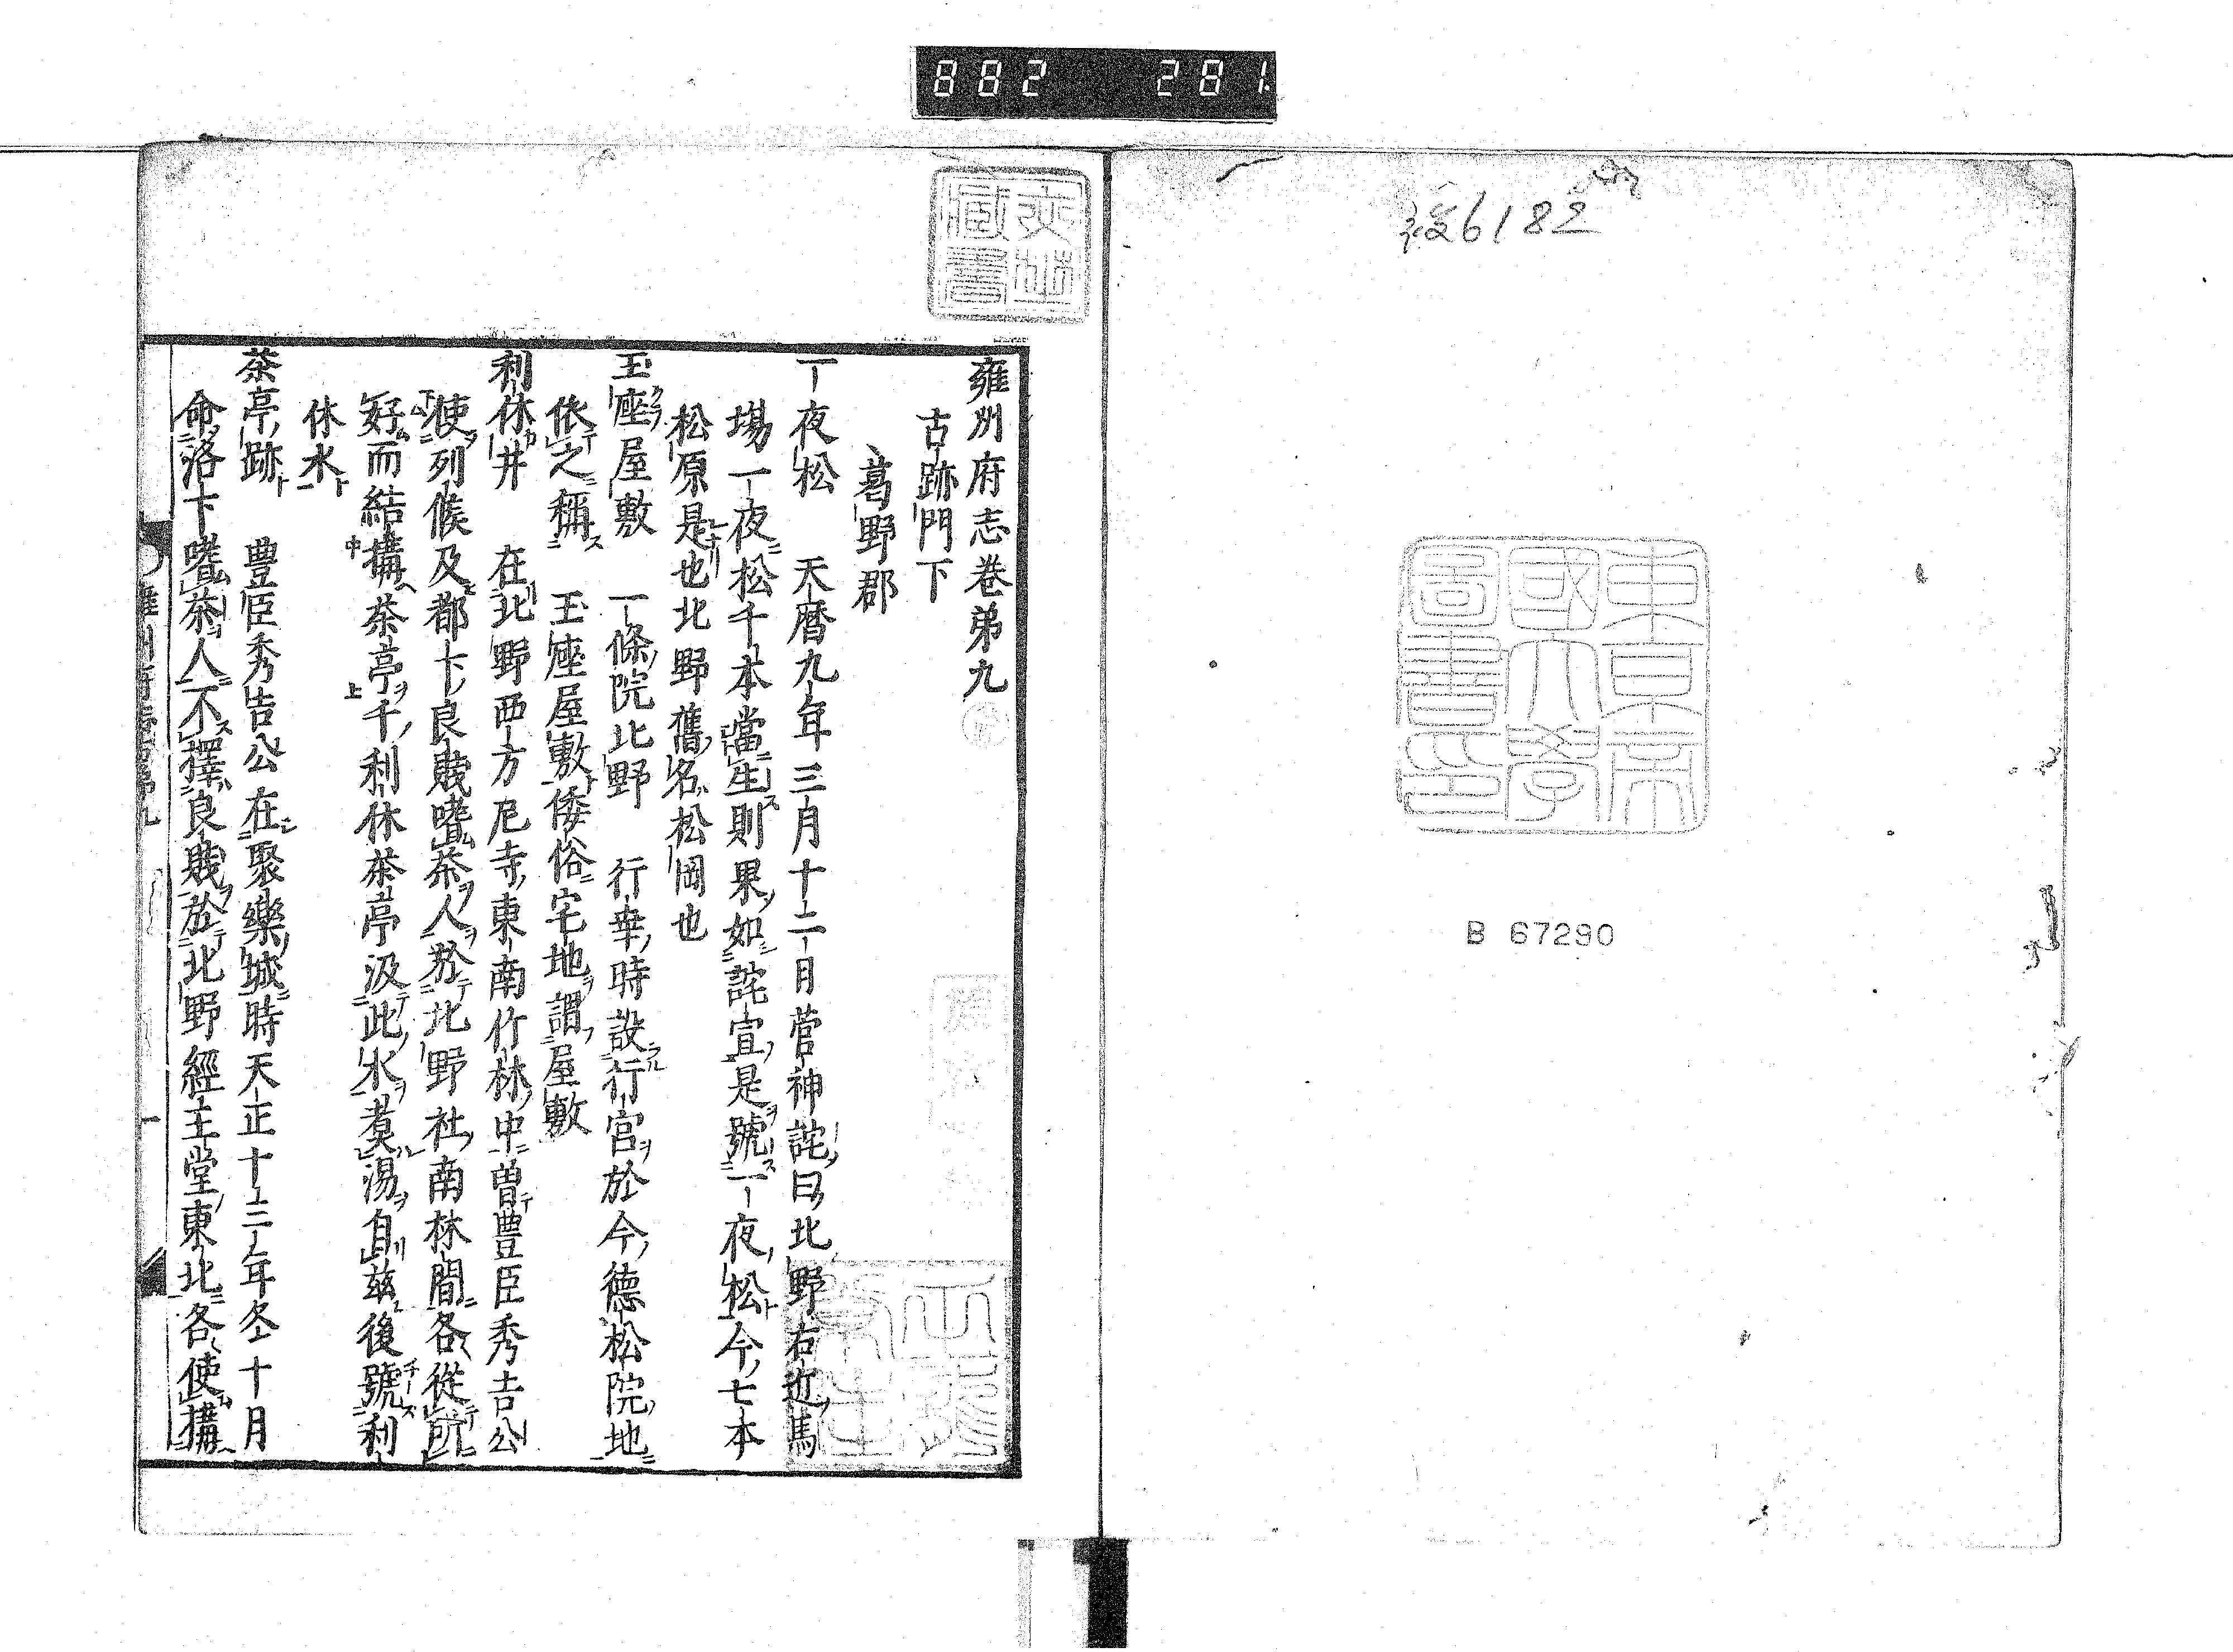 882 281
6182
東京帝
國大學
圖書印
B 67290
藏書
雍州府志巻第九
古跡門下
葛野郡
一夜松 天暦九年三月十二月菅神詫曰北野右近馬
塲一夜松千本當生則果如詫宣是號一夜松今七本
松原是也北野舊名松岡也
玉座屋敷 一條院北野 行幸時設行宮於今德松院地
依之稱 玉座屋敷倭俗宅地謂屋敷
利休井 在北野西方尼寺東南竹林中曽豊臣秀吉公
使列候及都下良賤嗜茶人於北野社南林間各從所
好而結搆茶亭千利休茶亭汲此水煑湯自茲後號利
休水
茶亭跡 豊臣秀吉公在聚樂城時天正十三年冬十月
命洛下嗜茶人不擇良賤於北野經主堂東北各使搆
雍州府志巻第九 一